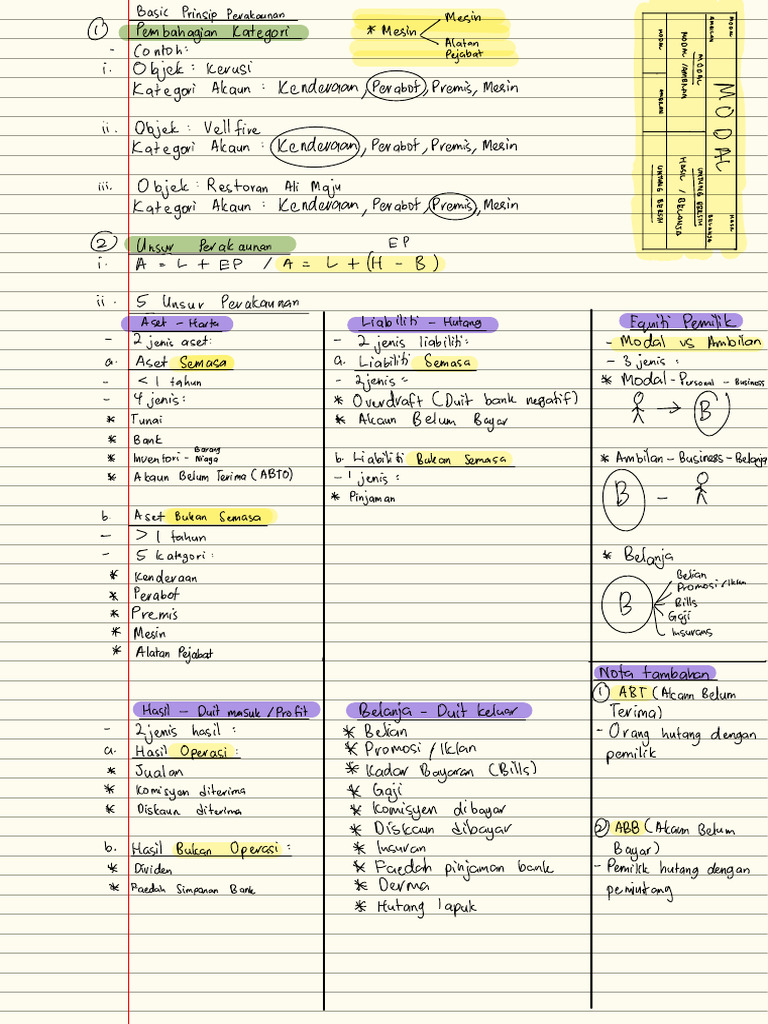 Basic Prinsip Perakaunan
① Pembahagian Kategori
* Mesin
Mesin
Alatan Pejabat
- Contoh:
i. Objek : Kerusi
Kategori Akaun : Kenderaan, Perabot, Premis, Mesin
ii. Objek : Vellfire
Kategori Akaun : Kenderaan, Perabot, Premis, Mesin
iii. Objek : Restoran Ali Maju
Kategori Akaun : Kenderaan, Perabot, Premis, Mesin
MODAL
MODAL
AMBILAN
HASIL
BELANJA
MODAL
MODAL / AMBILAN
UNTUNG BERSIH
HASIL / BELANJA
MODAL
AMBILAN
UNTUNG BERSIH
② Unsur Perakaunan
EP
i. A = L + EP / A = L + (H - B)
ii. 5 Unsur Perakaunan
Aset - Harta
- 2 jenis aset:
a. Aset Semasa
- < 1 tahun
- 4 jenis:
* Tunai
* Bank
* Inventori - Barang Niaga
* Akaun Belum Terima (ABTO)
b. Aset Bukan Semasa
- > 1 tahun
- 5 kategori:
* Kenderaan
* Perabot
* Premis
* Mesin
* Alatan Pejabat
Liabiliti - Hutang
- 2 jenis liabiliti:
a. Liabiliti Semasa
- 2jenis =
* Overdraft (Duit bank negatif)
* Akaun Belum Bayar
b. Liabiliti Bukan Semasa
- 1 jenis :
* Pinjaman
Equiti Pemilik
- Modal vs Ambilan
- 3 jenis :
* Modal - Personal - Business
B
* Ambilan - Business - Belanja
B
* Belanja
B
Belian
Promosi / Iklan
Bills
Gaji
Insurans
Hasil - Duit masuk / Profit
- 2 jenis hasil :
a. Hasil Operasi :
* Jualan
* Komisyen diterima
* Diskaun diterima
b. Hasil Bukan Operasi :
* Dividen
* Faedah Simpanan Bank
Belanja - Duit keluar
* Belian
* Promosi / Iklan
* Kadar Bayaran (Bills)
* Gaji
* Komisyen dibayar
* Diskaun dibayar
* Insuran
* Faedah pinjaman bank
* Derma
* Hutang lapuk
Nota tambahan
① ABT (Akaun Belum
Terima)
- Orang hutang dengan
pemilik
② ABB (Akaun Belum
Bayar)
- Pemilik hutang dengan
pemiutang